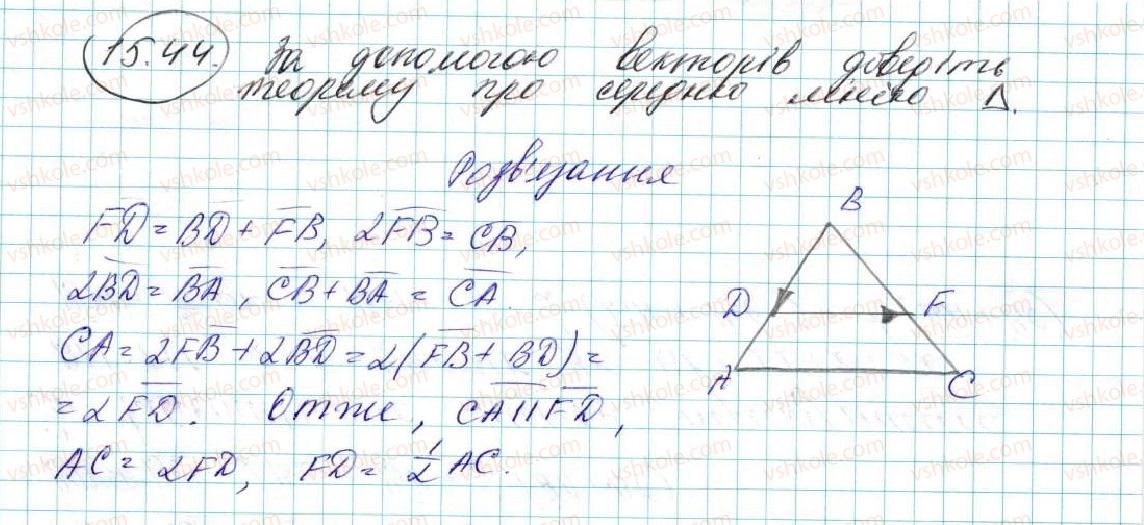 15.44. За допомогою векторів доведіть
теорему про середню лінію Δ.
Розв'язання
F̅D̅ = B̅D̅ + F̅B̅, 2F̅B̅ = C̅B̅,
2B̅D̅ = B̅A̅, C̅B̅ + B̅A̅ = C̅A̅.
CA = 2FB̅ + 2B̅D̅ = 2(F̅B̅ + BD) =
= 2F̅D̅. Отже, C̅A̅ || F̅D̅,
AC = 2FD, FD = 1/2 AC.
B
D
F
A
C
vshkole.com